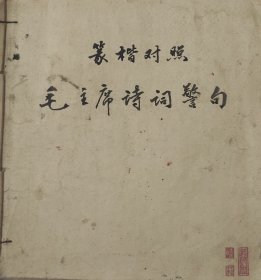 篆楷对照
毛主席诗词警句